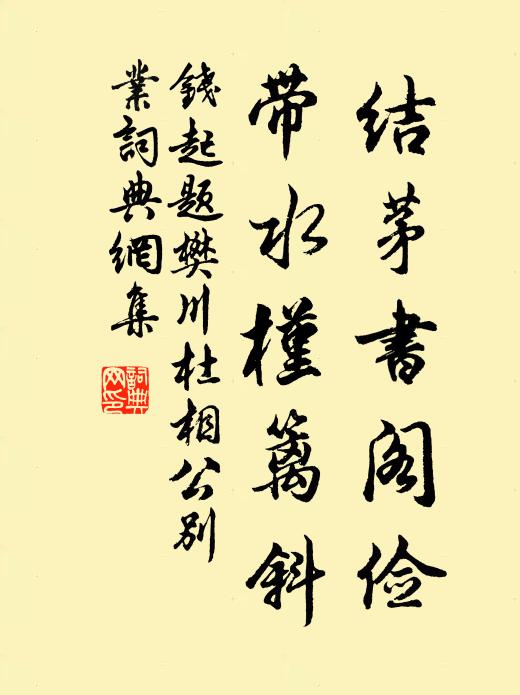 结茅书阁俭
带水槿篱斜
錢起题樊川杜相公别
業詞典網集
詞典
网印